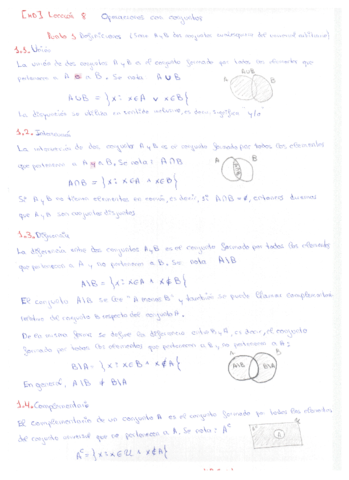 [MD] Lección 8 Operaciones con conjuntos
Punto 1 Definiciones (Sean A y B dos conjuntos cualesquiera del universal arbitrario)
1.1. Unión
La unión de dos conjuntos A y B es el conjunto formado por todos los elementos que
pertenecen a A o a B. Se nota A∪B
A∪B = {x : x∈A ∨ x∈B}
La disyunción se utiliza en sentido inclusivo, es decir, significa "y/o"
A∪B
A B
1.2. Intersección
La intersección de dos conjuntos A y B es el conjunto formado por todos los elementos
que pertenecen a A y a B. Se nota: A∩B
A∩B = {x : x∈A ∧ x∈B}
A B
Si A y B no tienen elementos en común, es decir, si A∩B = ∅, entonces diremos
que A y B son conjuntos disjuntos
1.3. Diferencia
La diferencia entre dos conjuntos A y B es el conjunto formado por todos los elementos
que pertenecen a A y no pertenecen a B. Se nota A\B
A\B = {x : x∈A ∧ x∉B}
El conjunto A\B se lee "A menos B" y también se puede llamar complementario
relativo del conjunto B respecto del conjunto A.
De la misma forma se define la diferencia entre B y A, es decir, el conjunto
formado por todos los elementos que pertenecen a B y no pertenecen a A:
B\A = {x : x∈B ∧ x∉A}
En general, A\B ≠ B\A
A B
A\B B\A
1.4. Complementario
El complementario de un conjunto A es el conjunto formado por todos los elementos
del conjunto universal que no pertenecen a A. Se nota: Aᶜ
Aᶜ = {x : x∈U ∧ x∉A}
A